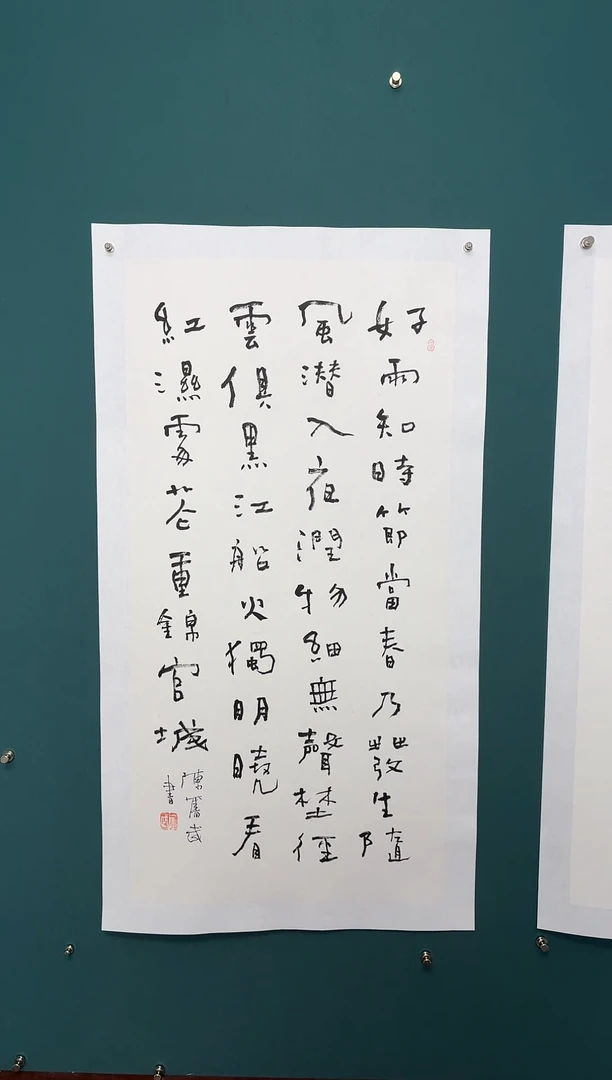 好雨知時節當春乃發生隨
風潛入夜潤物細無聲埜徑
雲俱黑江船火獨明曉看
紅濕處花重錦官城
陳
書